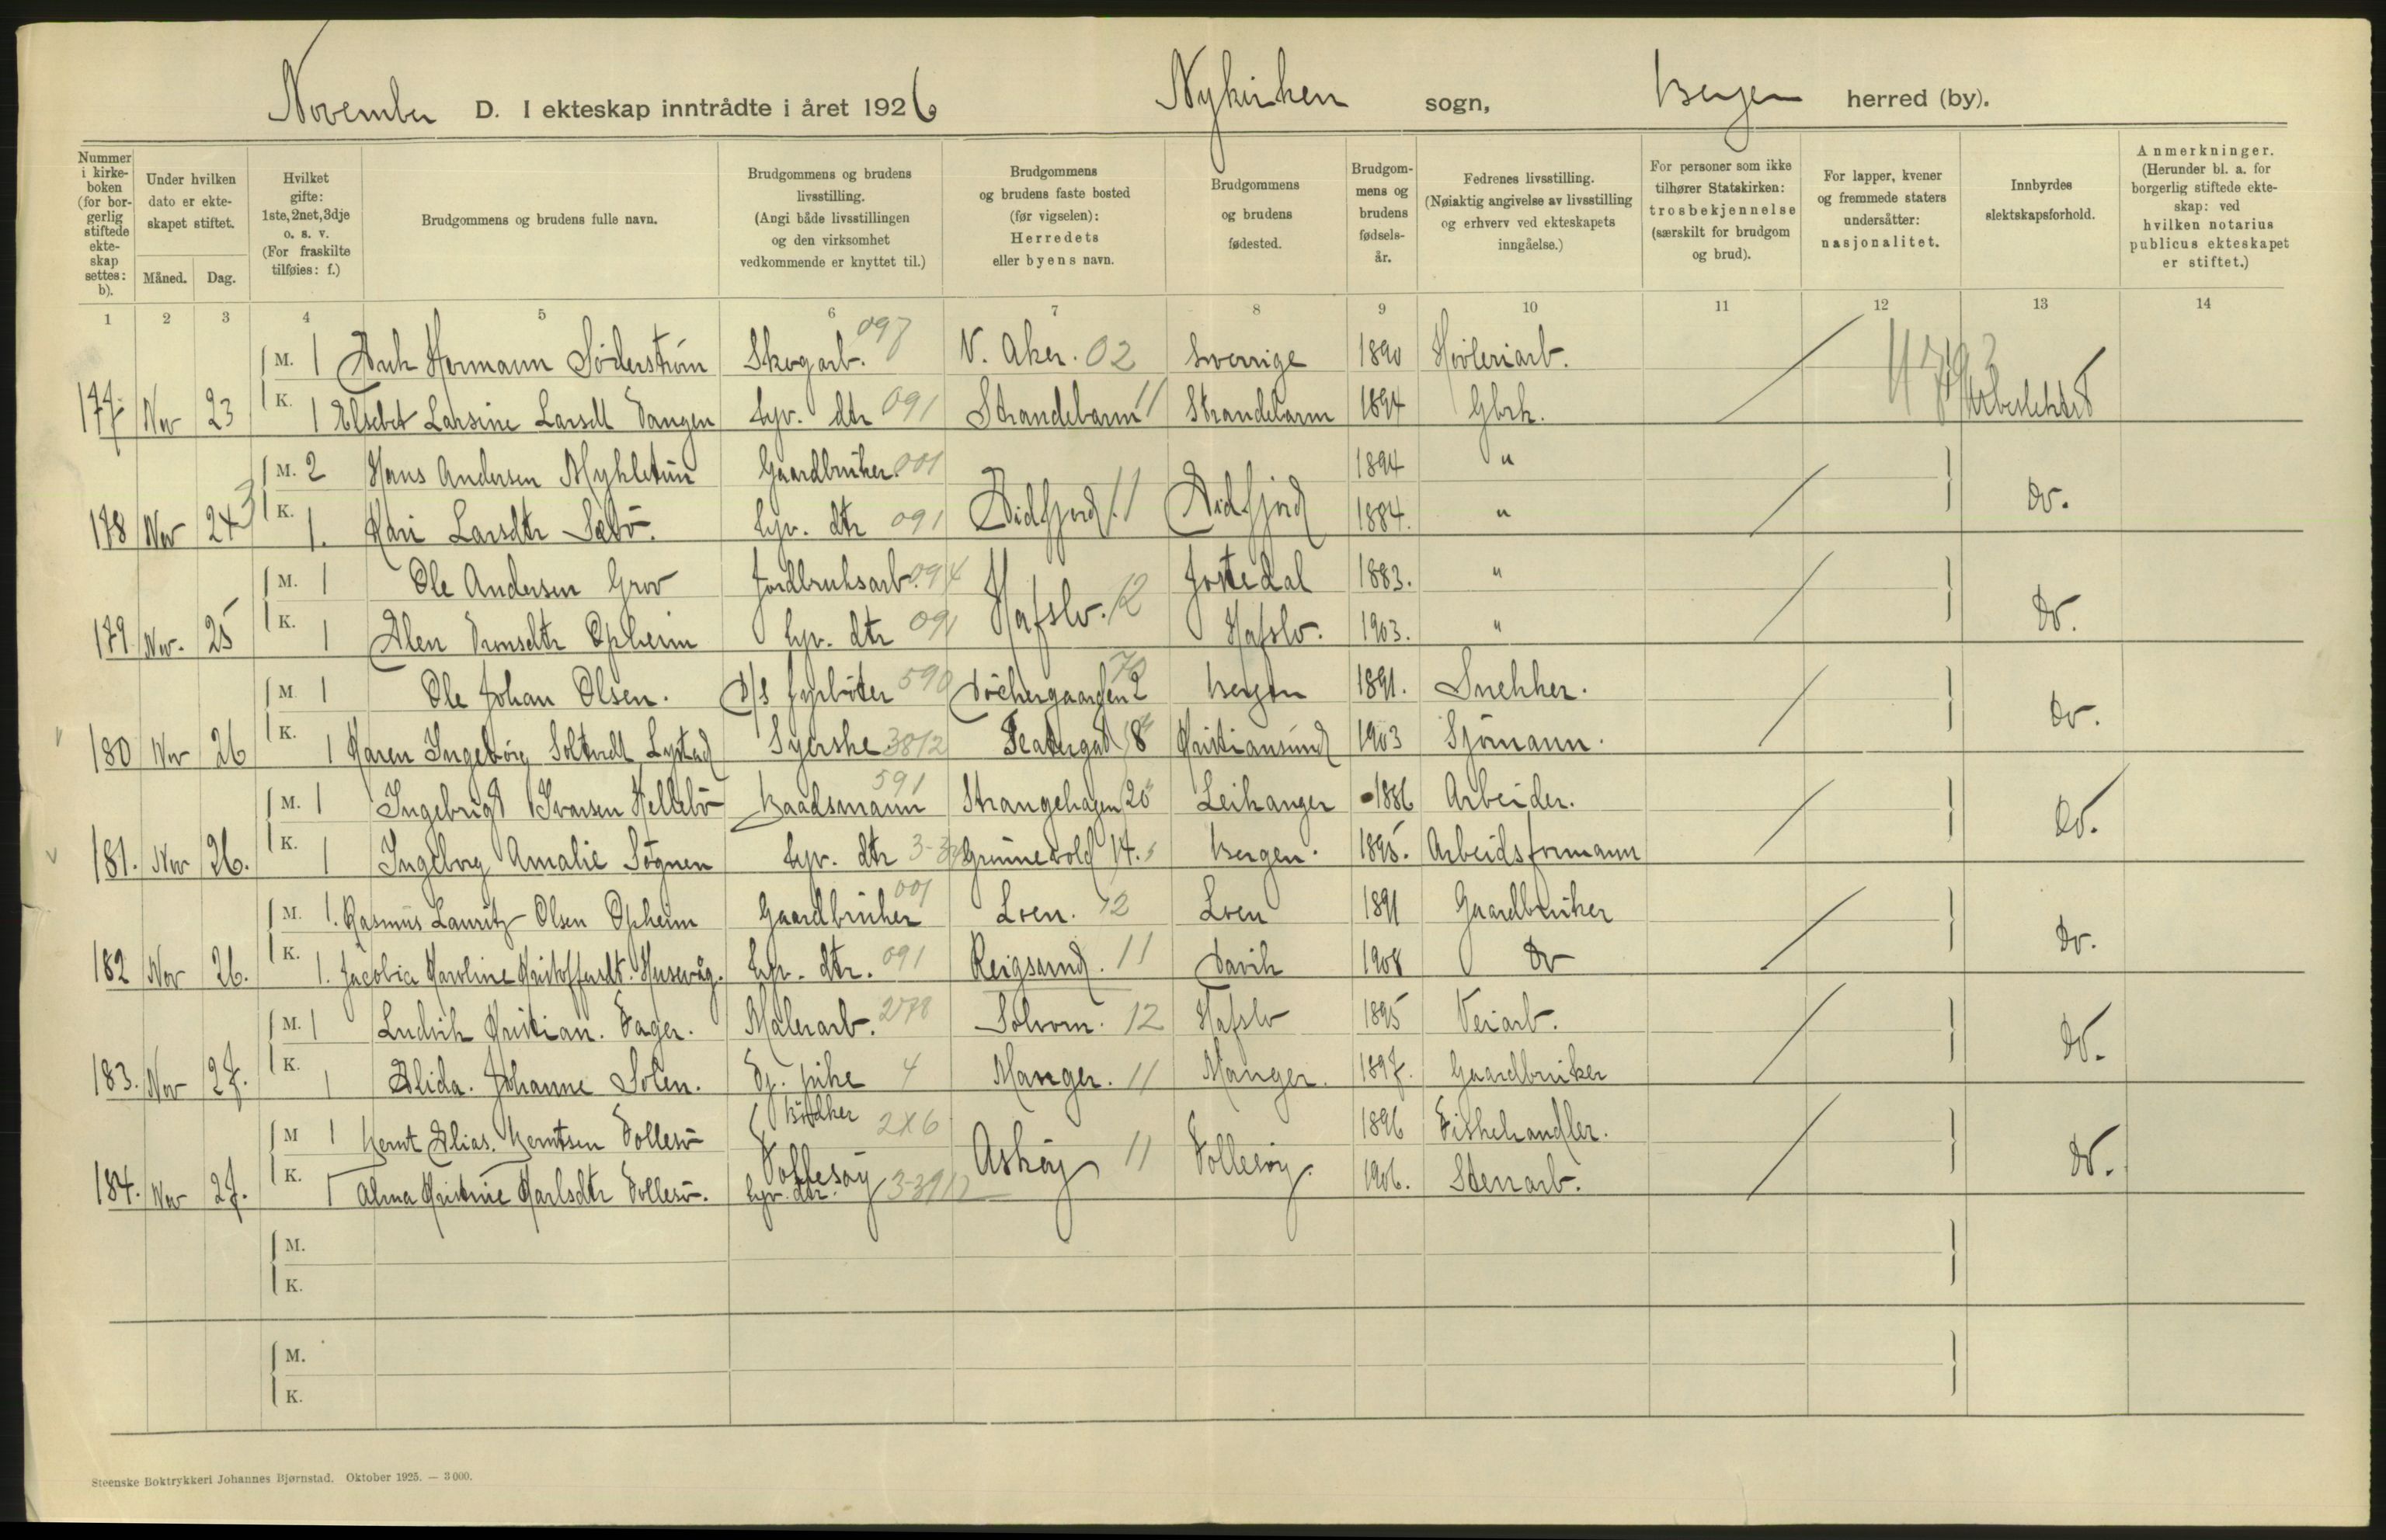 November D. I ekteskap inntrådte i året 1926 Nykirken sogn, Bergen herred (by).
Nummer i kirke-boken (for bor-gerlig stiftede ekte-skap settes: b).
Under hvilken dato er ekte-skapet stiftet.
Måned. Dag.
Hvilket gifte: 1ste, 2net, 3dje o. s. v. (For fraskilte tilføies: f.)
Brudgommens og brudens fulle navn.
Brudgommens og brudens livsstilling. (Angi både livsstillingen og den virksomhet vedkommende er knyttet til.)
Brudgommens og brudens faste bosted (før vigselen): Herredets eller byens navn.
Brudgommens og brudens fødested.
Brudgom-mens og brudens fødsels-år.
Fedrenes livsstilling. (Nøiaktig angivelse av livsstilling og erhverv ved ekteskapets inngåelse.)
For personer som ikke tilhører Statskirken: trosbekjennelse (særskilt for brudgom og brud).
For lapper, kvener og fremmede staters undersåtter: nasjonalitet.
Innbyrdes slektskapsforhold.
Anmerkninger. (Herunder bl. a. for borgerlig stiftede ekte-skap: ved hvilken notarius publicus ekteskapet er stiftet.)
1 2 3 4 5 6 7 8 9 10 11 12 13 14
M. 1 Hermann Söderström Skogarb. 097 V. Aker. 02 Sverrige 1890 Høvleriarb.
177 Nov 23 K. 1 Elsebet Larsine Larsdt Vangen hjv. dtr 091 Strandebarm 11 Strandebarm 1894 Gbrk. Ubeslektet
M. 2 Hans Andersen Mykletun Gaardbruker 001 1894 "
178 Nov 24 3 K. 1. Kari Larsdtr Sæbö. hjv. dtr 091 Eidfjord 11 Eidfjord 1884. " do.
M. 1 Ole Andersen Grov Jordbruksarb. 094 Jostedal 1883. "
179 Nov. 25 K. 1 Opheim hjv. dtr 091 Hafslo. 12 Hafslo. 1903. " do.
M. 1 Ole Johan Olsen. D/s fyrböter 590 2 Bergen 1891. Snekker.
180 Nov 26 K. 1 Karen Ingeborg Lystad Syerske 3812 Teatergat 8 Kristiansund 1903 Sjömann. do.
M. 1 Ingebrigt Ivarsen Hellebö Baadsmann 591 Strangehagen 20 Leikanger 1886 Arbeider.
181. Nov 26. K. 1 Ingeborg Amalie Sognen hjv. dtr 14. Bergen. 1895. Arbeidsformann do.
M. 1. Rasmus Lauritz Olsen Opheim Gaardbruker 001 Loen. 12 Loen 1891 Gaardbruker
182 Nov 26. K. 1. Jacobia Karoline Kristoffersdt. Husevåg. hjv. dtr. 091 Reigsund. 11 Davik 1908 do do.
M. 1 Ludvik Kristian. Fager. Malerarb. 278 Solvorn. 12 Hafslo 1895 Veiarb.
183. Nov 27. K. 1 Alida. Johanne Solen. Tj. pike 4 Manger. 11 Manger. 1897. Gaardbruker do.
M 1 Bernt Elias. Berntsen Follesö Bödker 2X6 1896 Fiskehandler.
Follesøy Askøy 11 Follesøy.
184. Nov 27. K. 1 Alma Kristine Karlsdtr Follesö. hjv. dtr. 1906. Stenarb. do.
M.
K.
M.
K.
Steenske Boktrykkeri Johannes Bjørnstad. Oktober 1925. — 3 000.